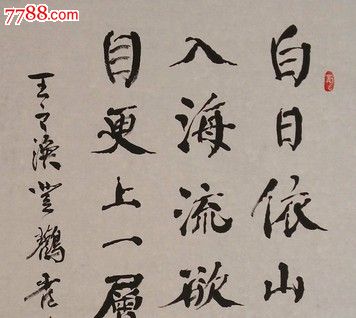 7788.com
白日依山
入海流欲
目更上一层
王之涣登鹳雀